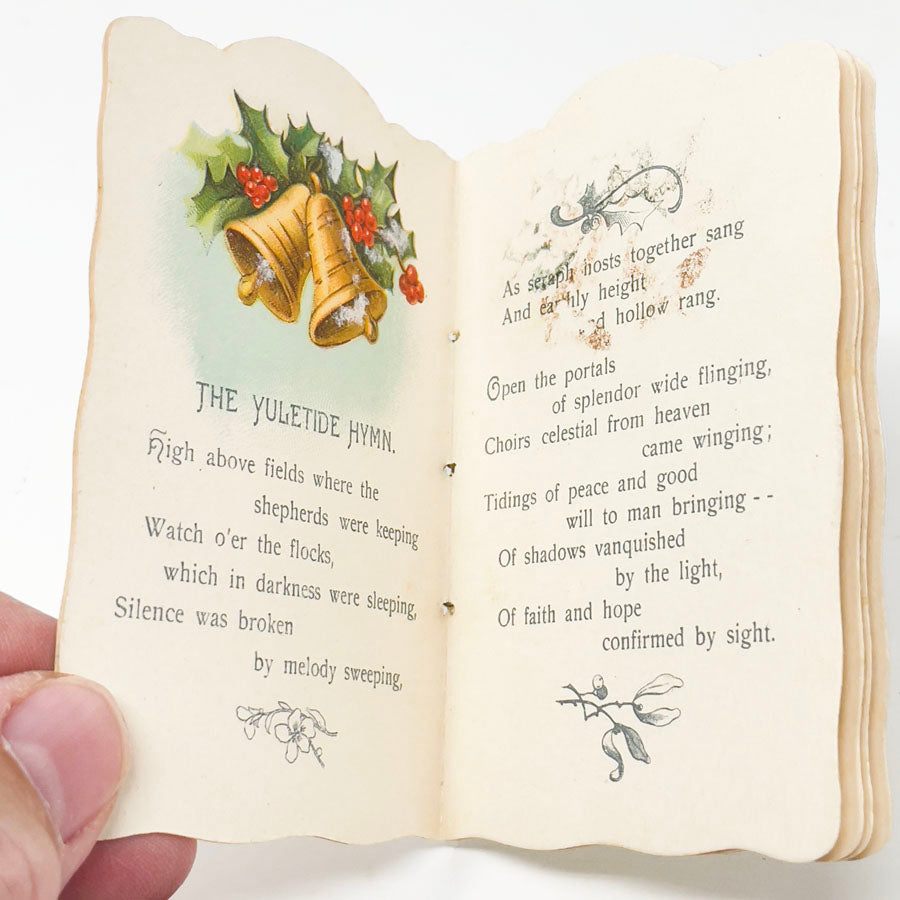 THE YULETIDE HYMN.
High above fields where the
shepherds were keeping
Watch o'er the flocks,
which in darkness were sleeping,
Silence was broken
by melody sweeping,
As seraph hosts together sang
And earthly height
hollow rang.
Open the portals
of splendor wide flinging,
Choirs celestial from heaven
came winging;
Tidings of peace and good
will to man bringing - -
Of shadows vanquished
by the light,
Of faith and hope
confirmed by sight.